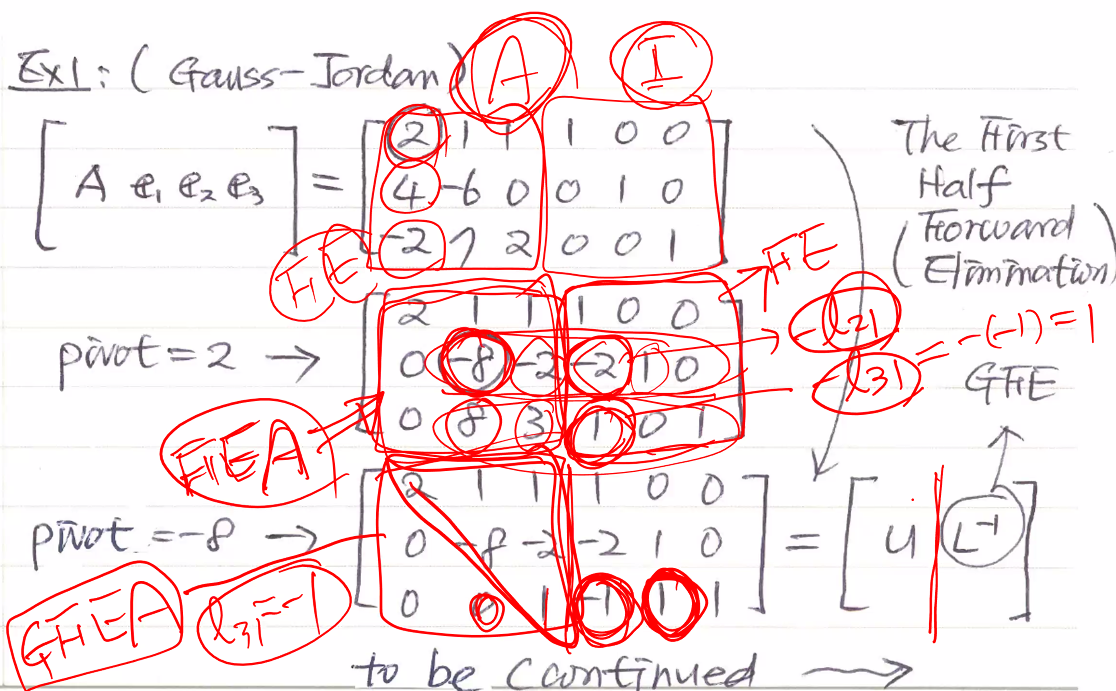 Ex1: (Gauss-Jordan) A I
[ A e₁ e₂ e₃ ] = [ 2 1 1 1 0 0
4 -6 0 0 1 0
-2 7 2 0 0 1 ]
The First
Half
(Forward
Elimination)
FE
FE
pivot = 2 → [ 2 1 1 1 0 0
0 -8 -2 -2 1 0
0 8 3 1 0 1 ]
-l21
-l31 = -(-1) = 1
GFE
FEA
pivot = -8 → [ 2 1 1 1 0 0
0 -8 -2 -2 1 0
0 0 1 -1 1 1 ] = [ U | L⁻¹ ]
GFEA
l31=-1
to be continued →